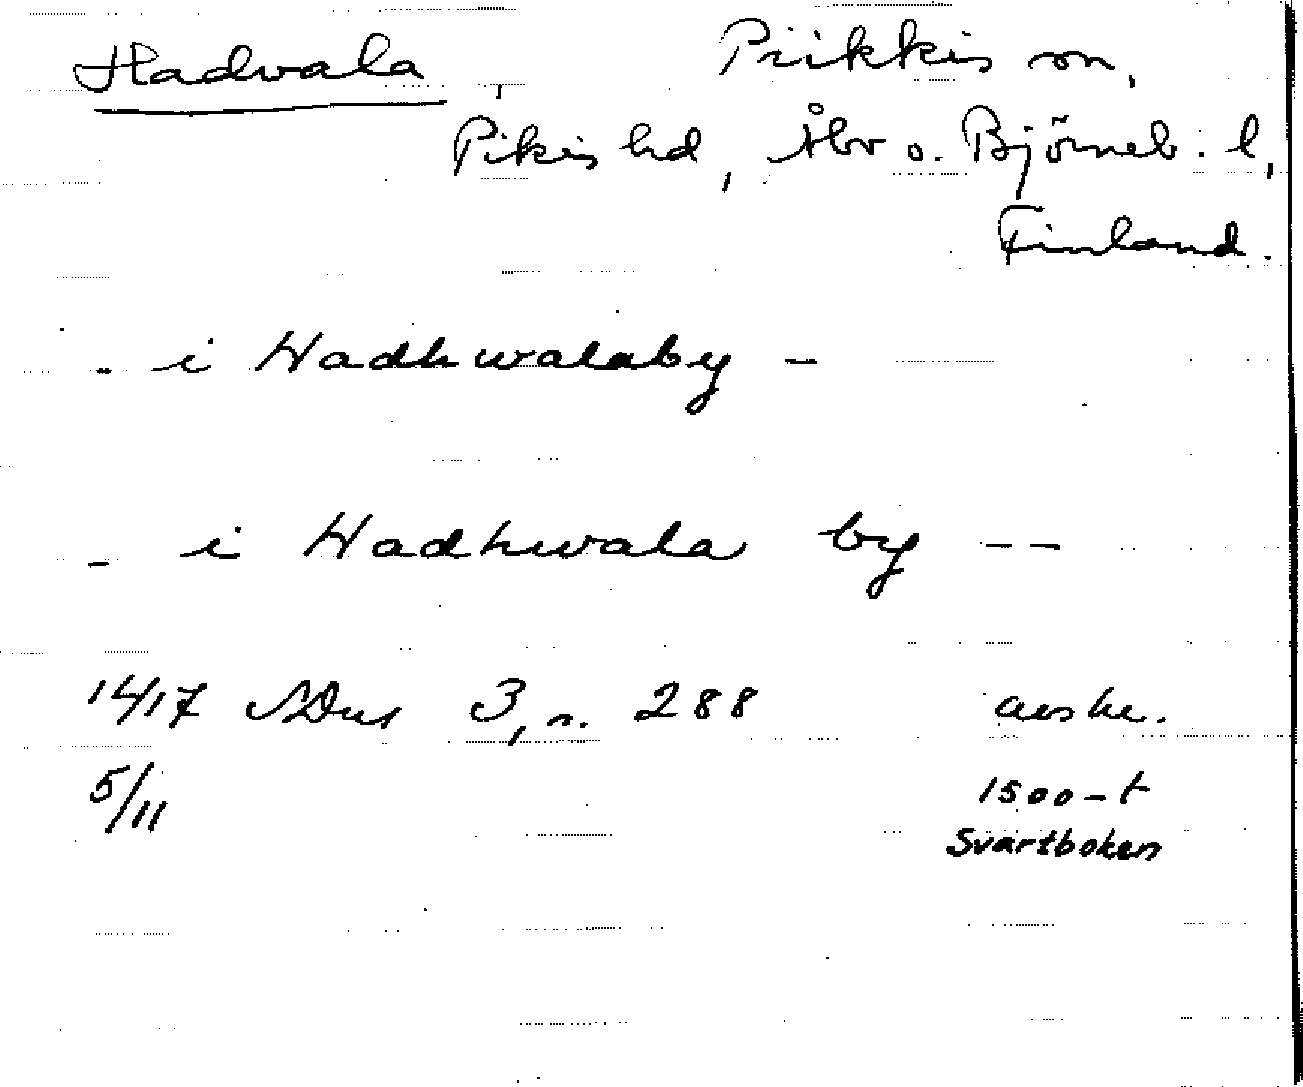 Hadvala, Piikkis sn,
Pikis hd, Åbo o. Björneb. l,
Finland.
- i Hadhwalaby -
- i Hadhwala by --
1417 SDns 3, n. 288 avskr.
5/11 1500-t
Svartboken